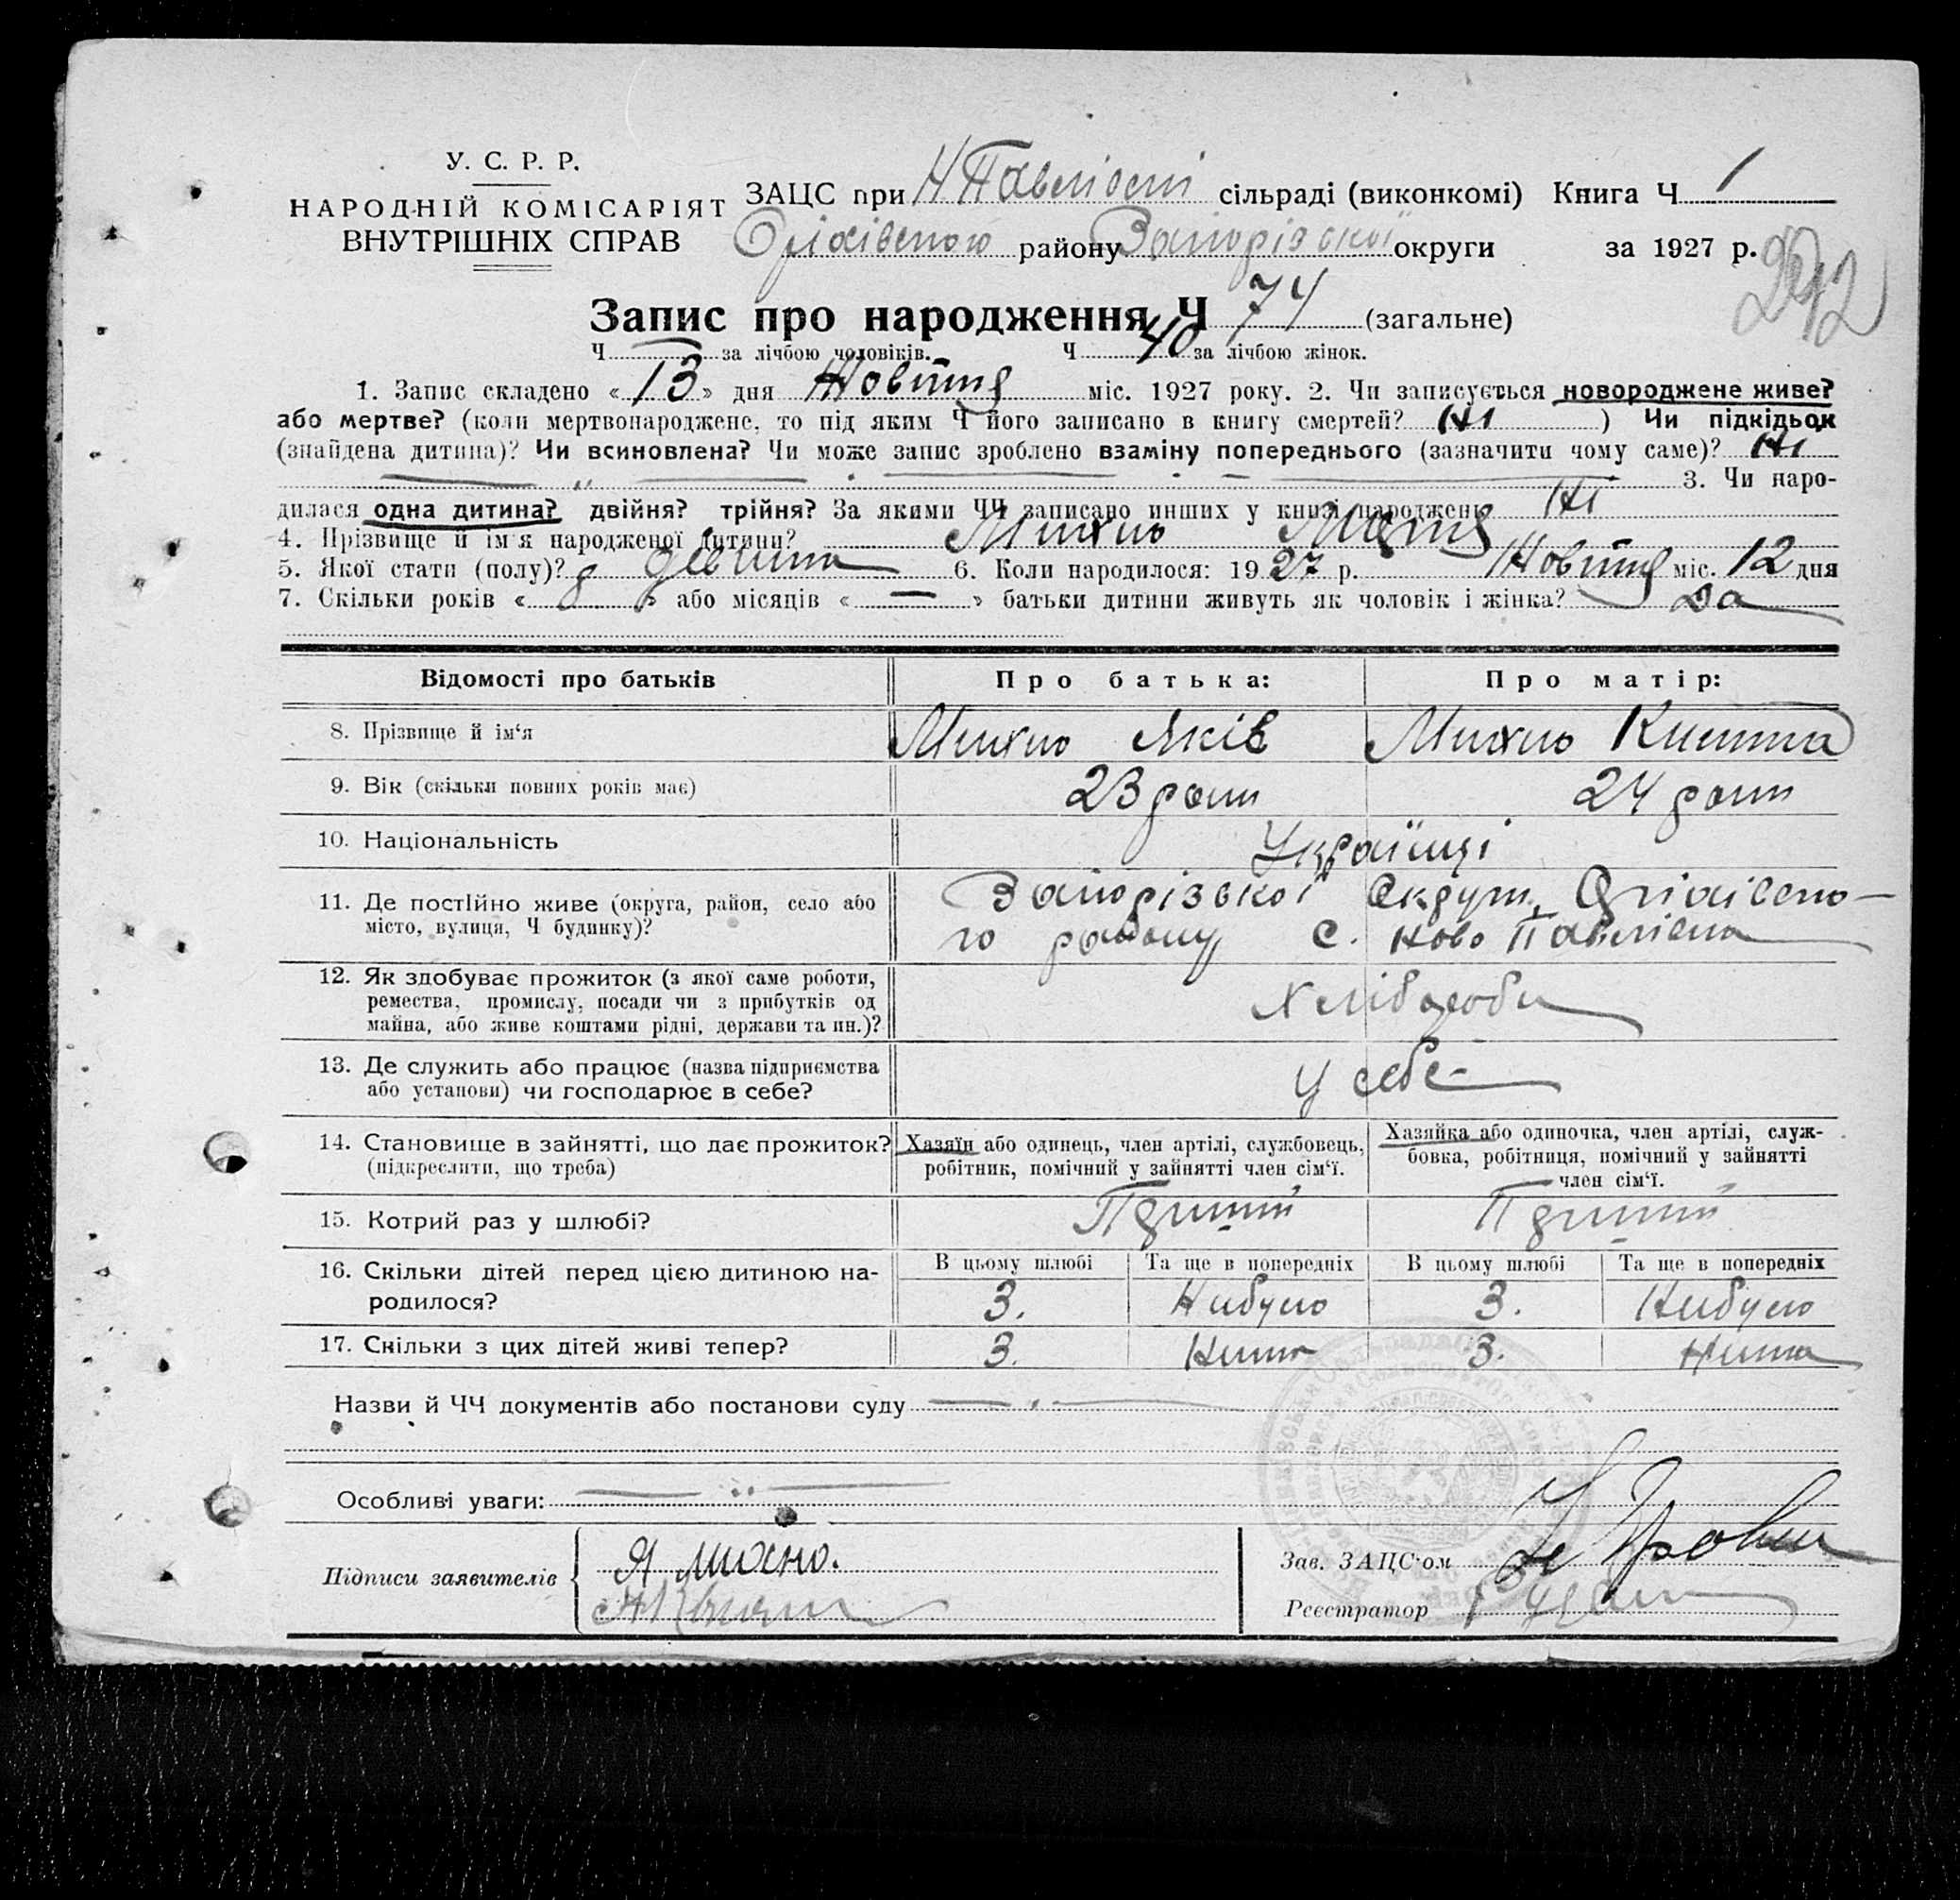 У. С. Р. Р.
НАРОДНІЙ КОМІСАРІЯТ
ВНУТРІШНІХ СПРАВ
ЗАЦС при Н Павлівсті сільраді (виконкомі) Книга Ч 1
Оріхівського району Запорізької округи за 1927 р.
292
Запис про народження Ч 74 (загальне)
Ч — за лічбою чоловіків. Ч 40 за лічбою жінок.
1. Запис складено « 13 » дня Жовтня міс. 1927 року. 2. Чи записується новороджене живе?
або мертве? (коли мертвонароджене, то під яким Ч його записано в книгу смертей? Ні ) Чи підкідьок
(знайдена дитина)? Чи всиновлена? Чи може запис зроблено взаміну попереднього (зазначити чому саме)? Ні
— „ — 3. Чи наро-
дилася одна дитина? двійня? трійня? За якими ЧЧ записано инших у книзі народжень Ні
4. Прізвище й ім'я народженої дитини? Михно Марія
5. Якої стати (полу)? дівчина 6. Коли народилося: 1927 р. Жовтня міс. 12 дня
7. Скільки років « 8 » або місяців « — » батьки дитини живуть як чоловік і жінка? Да
Відомості про батьків Про батька: Про матір:
8. Прізвище й ім‘я Михно Яків Михно
9. Вік (скільки повних років має) 23 роки 24 роки
10. Національність Українці
11. Де постійно живе (округа, район, село або Запорізької Округи, Оріхівсько-
місто, вулиця, Ч будинку)? го району с. Ново Павлівка
12. Як здобуває прожиток (з якої саме роботи,
ремества, промислу, посади чи з прибутків од
майна, або живе коштами рідні, держави та ин.)? Хлібороби
13. Де служить або працює (назва підприємства
або установи) чи господарює в себе? У себе
14. Становище в зайнятті, що дає прожиток?
(підкреслити, що треба)
Хазяїн або одинець, член артілі, службовець,
робітник, помічний у зайнятті член сім‘ї.
Хазяйка або одиночка, член артілі, служ-
бовка, робітниця, помічний у зайнятті
член сім‘ї.
15. Котрий раз у шлюбі? Перший Перший
16. Скільки дітей перед цією дитиною на-
родилося?
В цьому шлюбі Та ще в попередніх В цьому шлюбі Та ще в попередніх
3. Нибуло 3. Нибуло
17. Скільки з цих дітей живі тепер? 3. Нима 3. Нима
Назви й ЧЧ документів або постанови суду — „ —
Особливі уваги: — „ —
Підписи заявителів Я михно.
Зав. ЗАЦС‘ом
Реєстратор